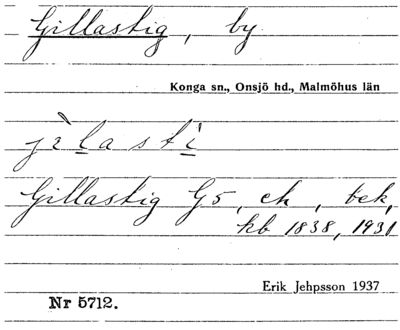 Gillastig, by
Konga sn., Onsjö hd., Malmöhus län
jìlastì
Gillastig G5, ek, bek,
kb 1838, 1931
Erik Jehpsson 1937
Nr 5712.